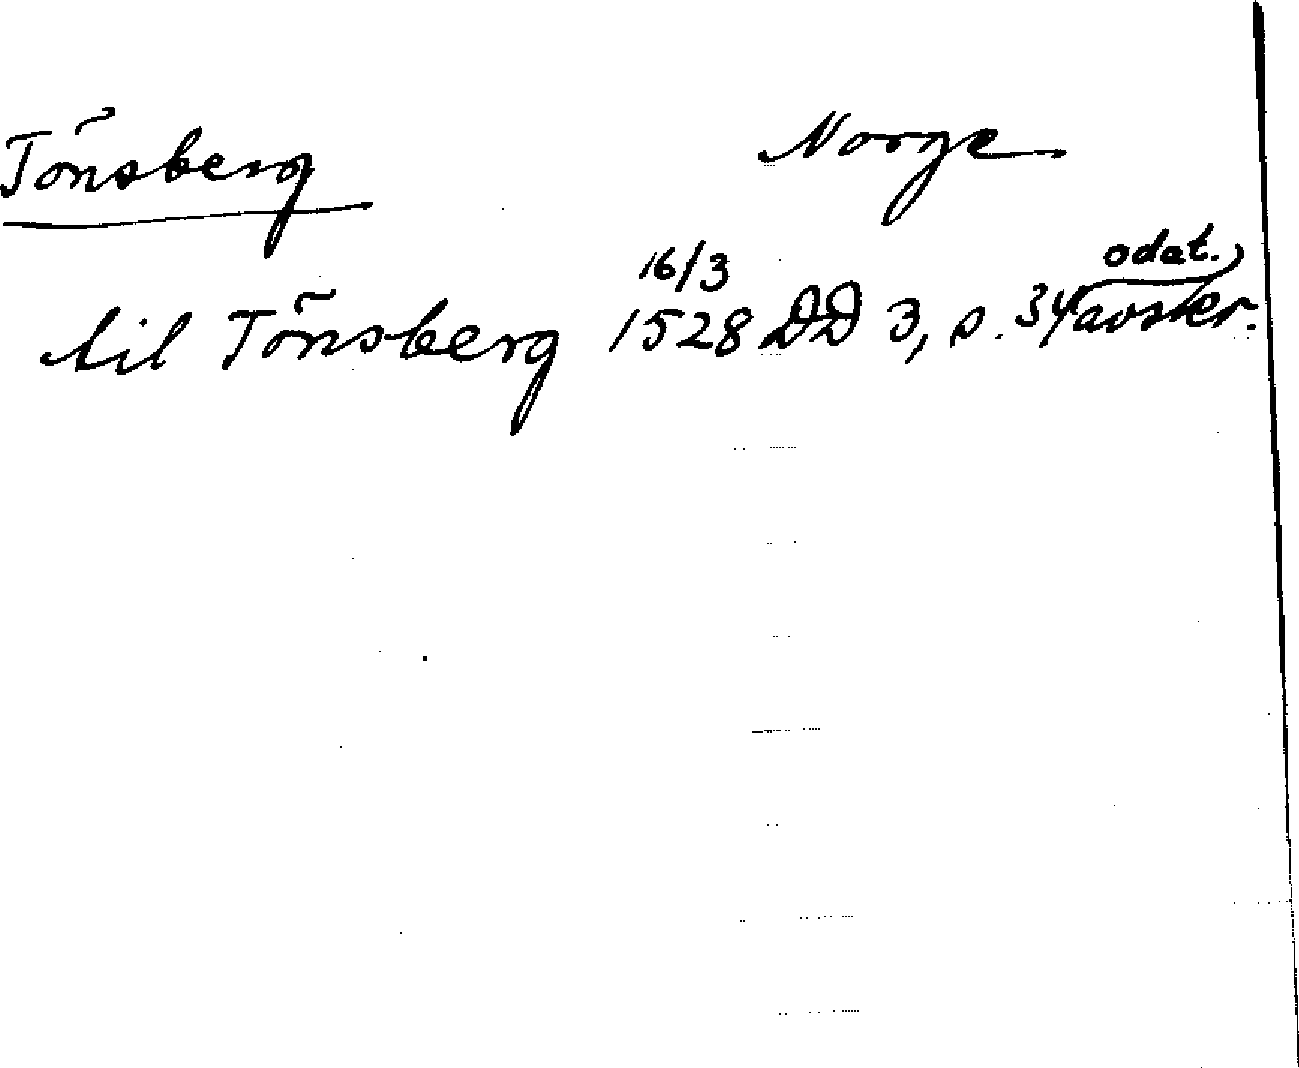 Tönsberg Norge
16/3 odat.
til Tönsberg 1528 DD 3, s. 34 avskr.